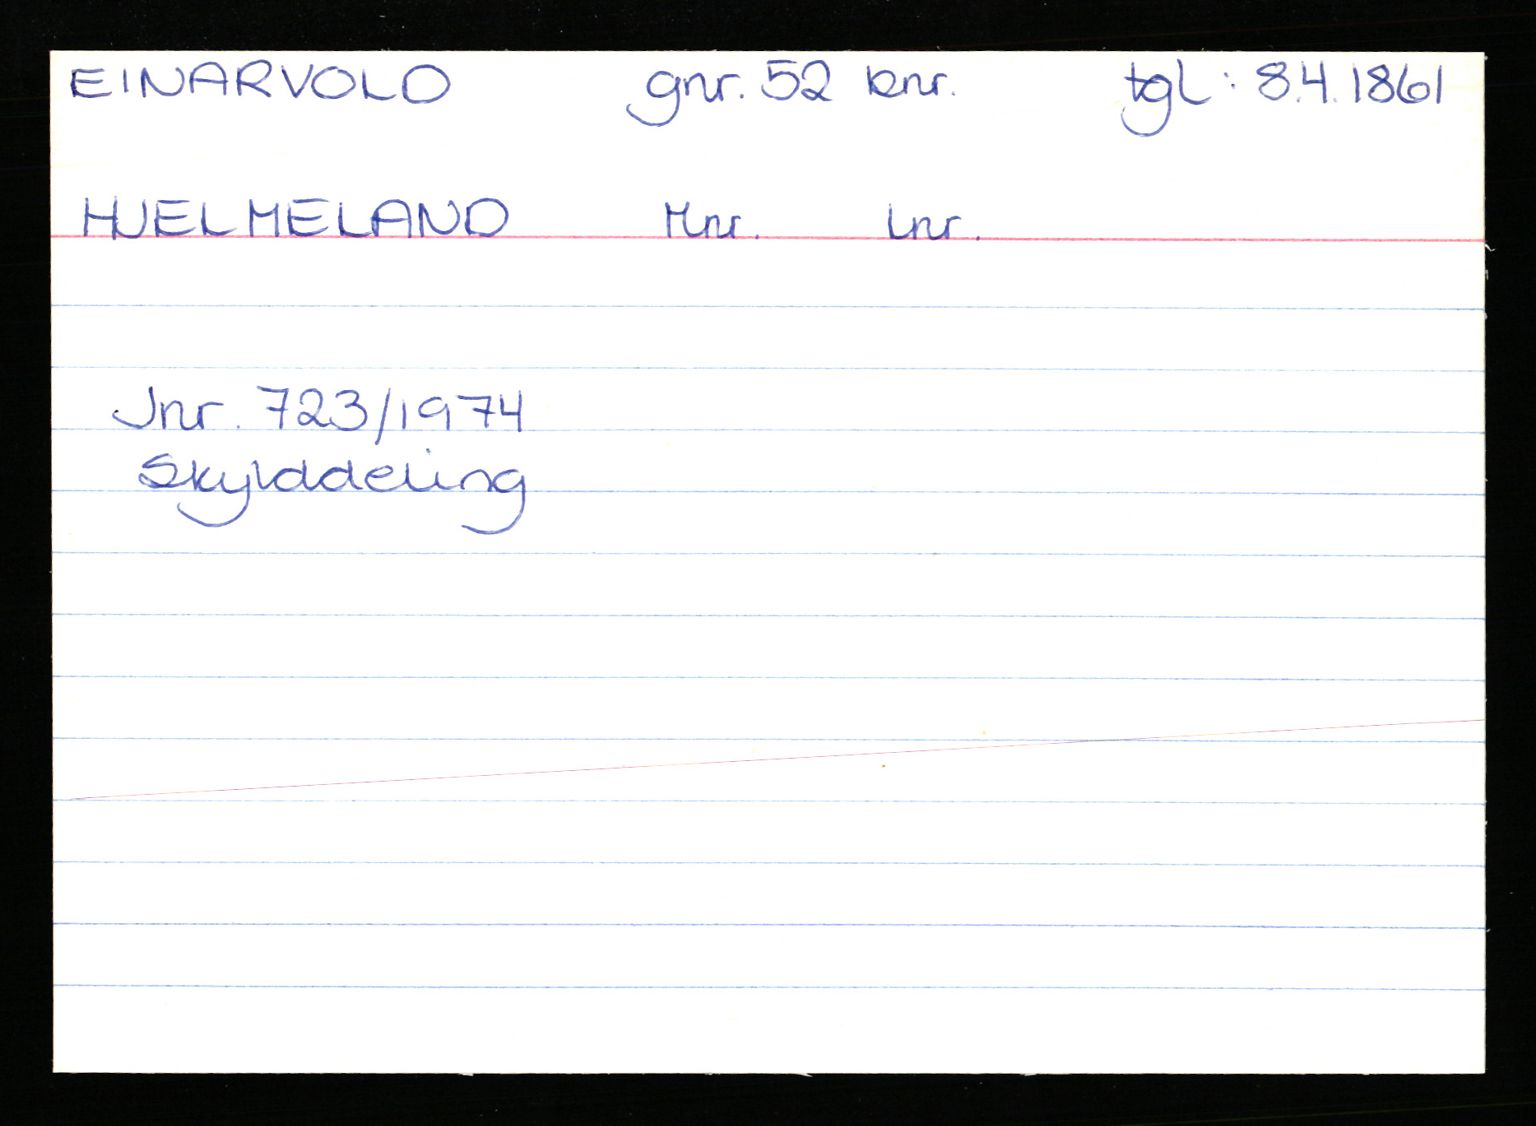 EINARVOLD gnr. 52 bnr. tgl: 8.4.1861
HJELMELAND Mnr. Lnr.
Jnr. 723/1974
Skylddeling